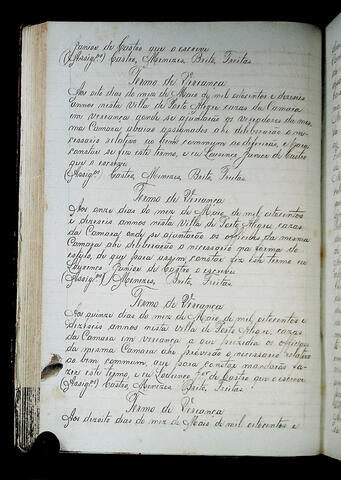 Junior de Castro que o escrevi
(Assign.os) Castro, Menezes, Brito, Freitas
Termo de Vereança
Aos oito dias do mez de Maio de mil oitocentos e dezseis
annos nesta Villa de Porto Alegre cazas da Camara
em vereança aonde se ajuntarão os vereadores da mes
ma Camara abaixo assignados ahi deliberarão o ne
cessario relativo ao bem commum
constar se fez este termo, e eu Lourenço Junior de Castro
que o escrevi
(Assign.os) Castro, Menezes, Brito, Freitas
Termo de Vereança
Aos onze dias do mez de Maio de mil oitocentos
e dezseis annos nesta Villa de Porto Alegre, cazas
da Camara, onde se ajuntarão os officiaes da mesma
Camara, ahi deliberarão o necessario na forma do
estylo, de que para assim constar fiz este termo eu
Lourenço Junior de Castro o escrevi
(Assign.os) Menezes, Brito, Freitas
Termo de Vereança
Aos quinze dias do mez de Maio de mil oitocentos e
dezseis annos nesta Villa de Porto Alegre, cazas
da Camara em vereança a que prezidio os officiaes
da mesma Camara ahi proverão o necessario relativo
ao bem commum, que para constar mandarão fa
zer este termo, e eu Lourenço J.or de Castro que o escrevi
(Assign.os) Castro, Menezes, Brito, Freitas
Termo de Vereança
Aos dezoito dias do mez de Maio de mil oitocentos e